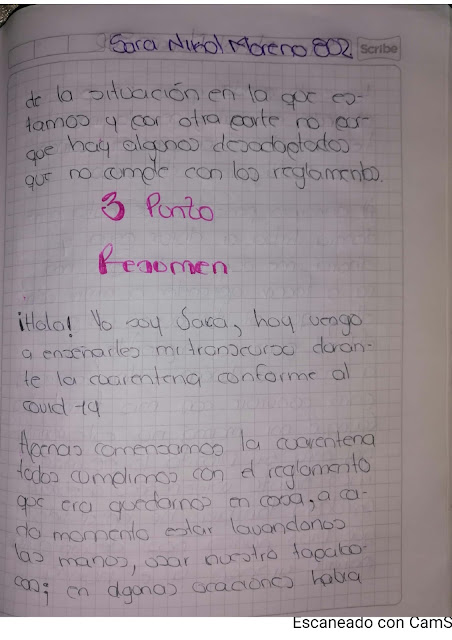 Sara Nikol Moreno 802 Scribe
de la situación en la que es-
tamos y por otra parte no por-
que hay algunos desadaptados
que no cumple con los reglamento.
3 Punto
Resumen
¡Hola! Yo soy Sara, hoy vengo
a enseñarles mi transcurso duran-
te la cuarentena conforme al
covid-19
Apenas comensamos la cuarentena
todos cumplimos con el reglamento
que era quedarnos en casa, a ca-
da momento estar lavandonos
las manos, usar nuestro tapabo-
cas; en algunas ocaciones habia
Escaneado con CamS